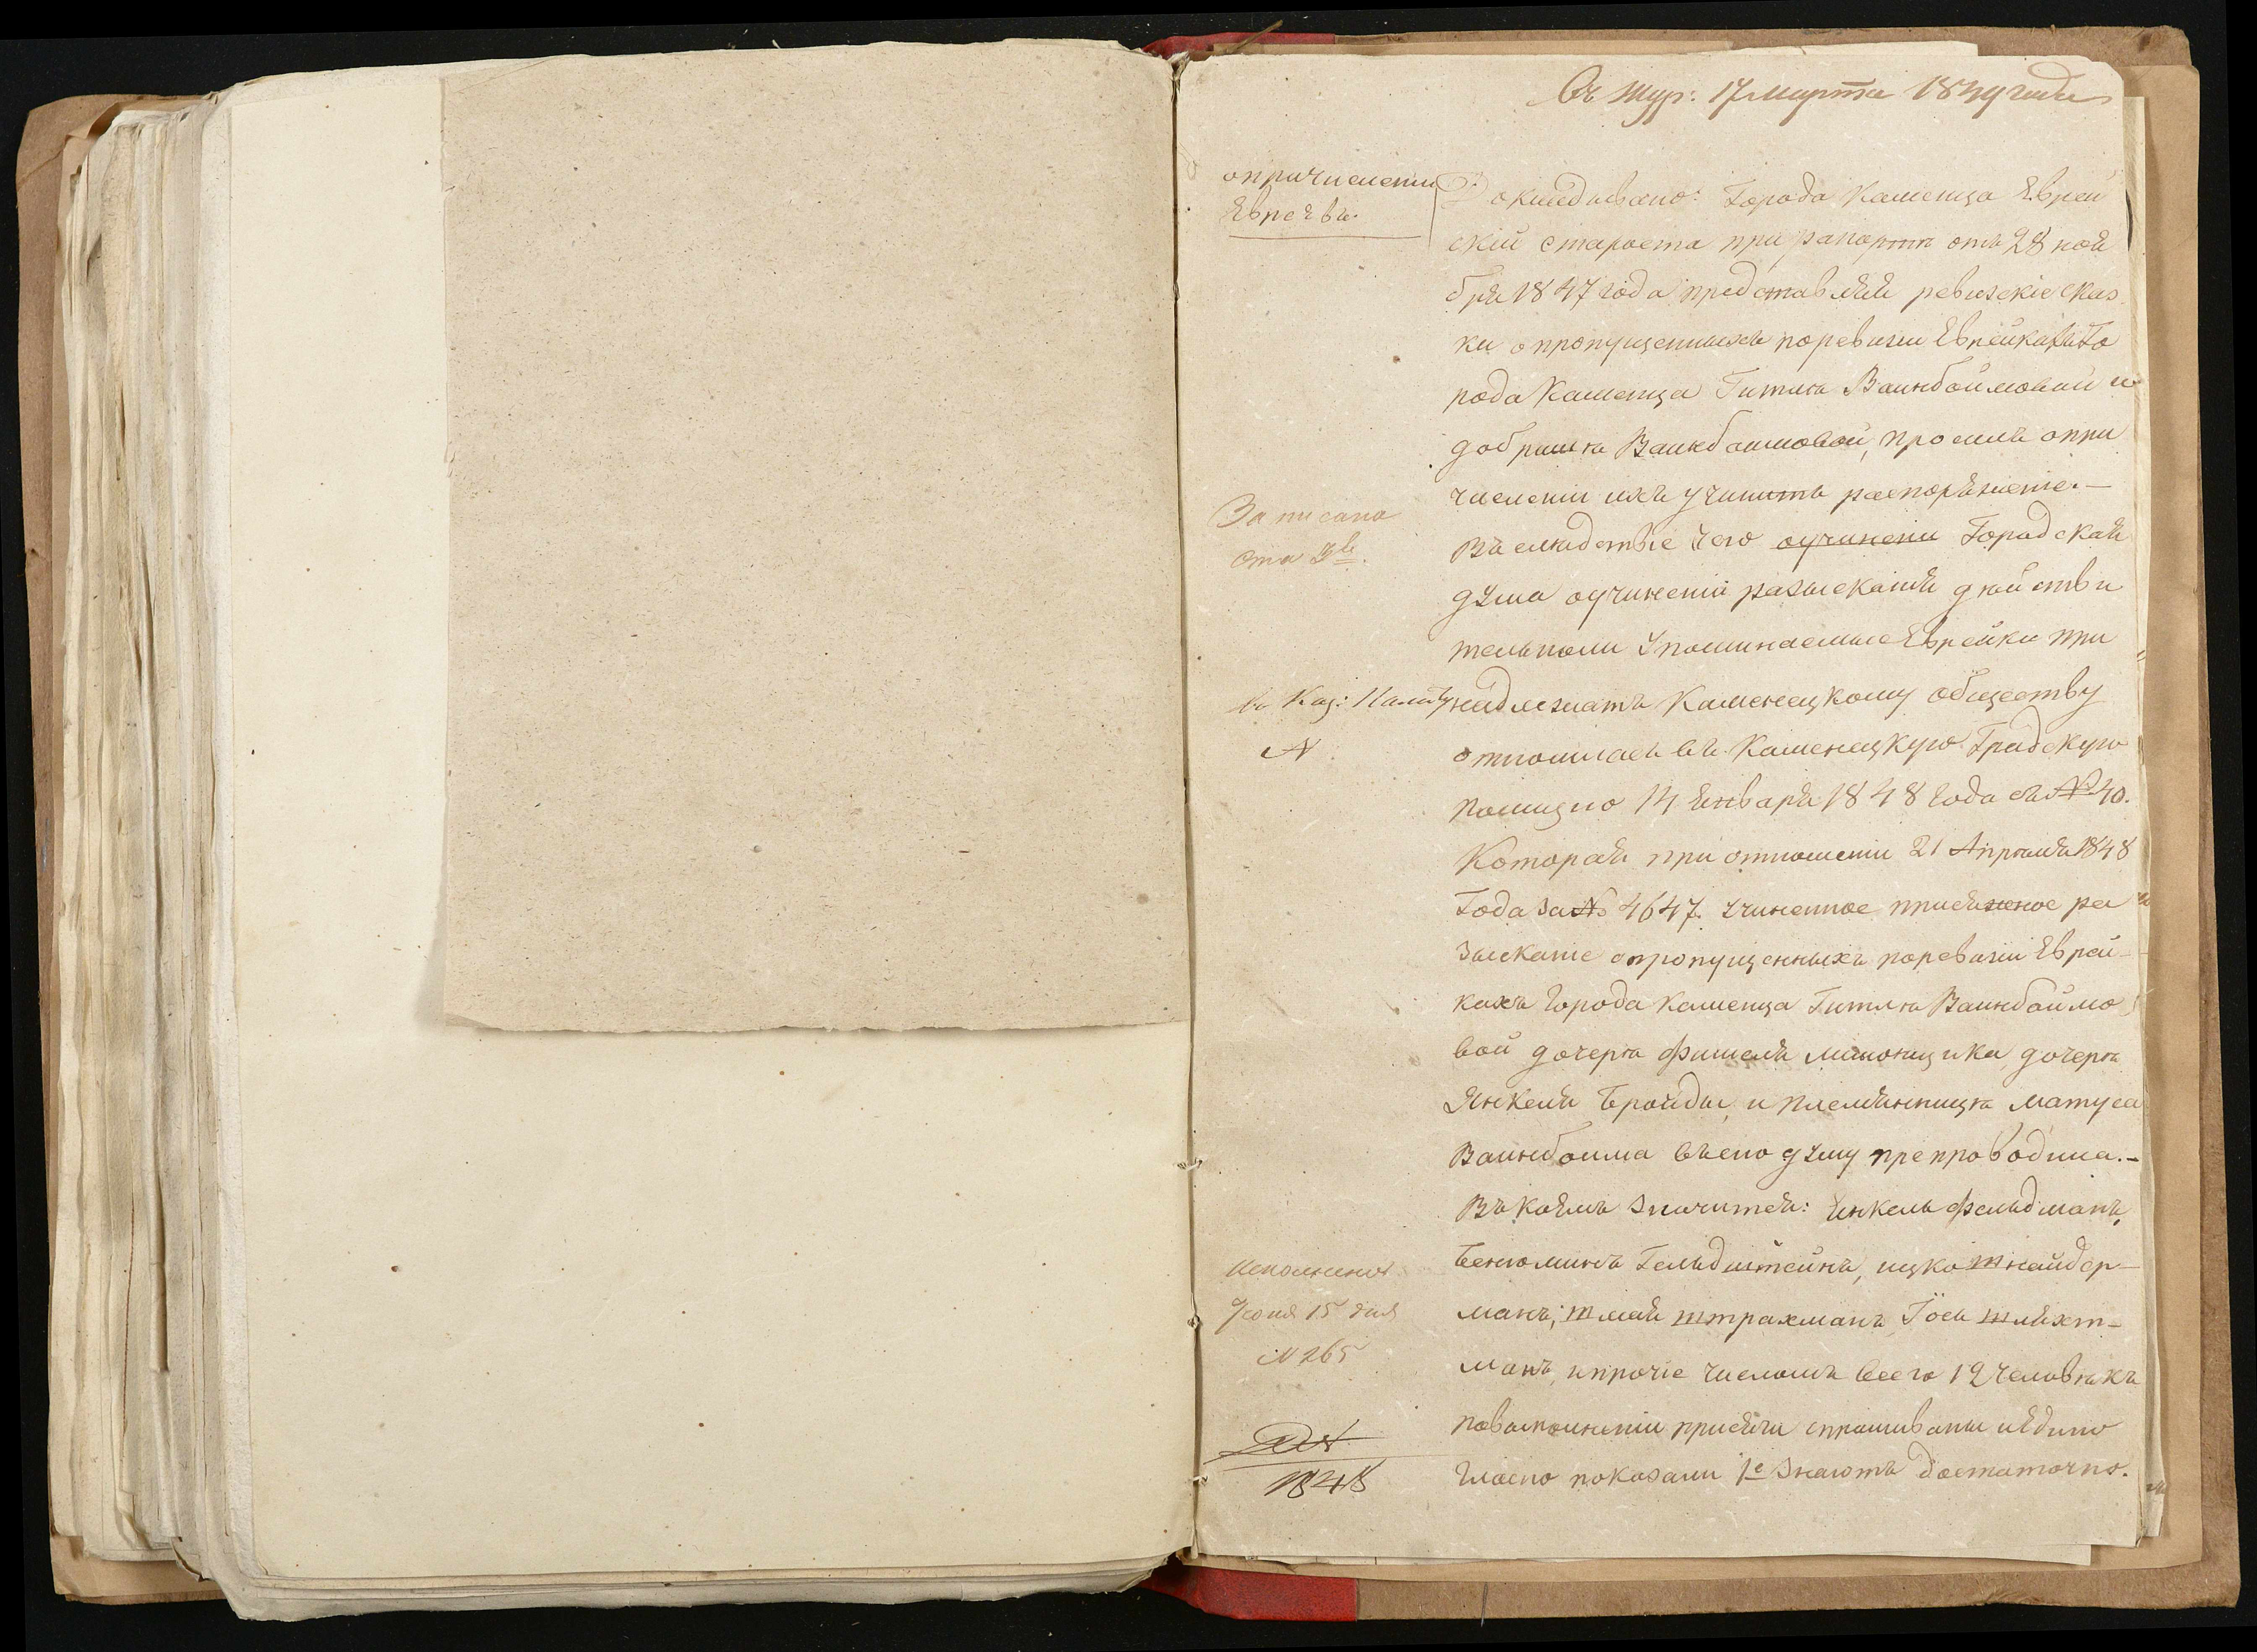 Въ Жур: 17 марта 1849 года
о причислении
Евреевъ.
Докладывано: Города Каменца Еврей
скій староста при рапортѣ отъ 28 ноя
бря 1847 года представляя ревизскіе сказ
ки о пропущенныхъ по ревизіи Еврейкахъ Го
рода Каменца Гитлѣ Ваинбоймовой и
добришѣ Ваинбоимовой, просилъ опри
численіи ихъ учинить распоряженіе.—
Въ слѣдствіе чего оучинени Городская
дума оучиненіи разысканія дѣйстви
тельноли упоминаемые Еврейки при
надлежатъ Каменецкому обществу
относилась въ Каменецкую Градскую
полицію 14 января 1848 года съ № 40.
Которая при отношеніи 21 Апрѣля 1848
Года за № 4647. учиненное присяжное ра
зысканіе опропущенныхъ по ревизіи Еврей-
кахъ Города Каменца Гитлѣ Ваинбоймо
вой дочерѣ Фишеля дочерѣ
Янкеля Бройды, и племянницѣ Матуса
Ваинбоима въсію думу препроводила.-
Въ коемъ значится: Янкель Фельдманъ,
Бенюминъ Гельдштейнъ, ицко Шнайдер-
манъ, Шмая Штрахманъ, Іось Шляхт-
манъ, и прочіе числомъ всего 12 человѣкъ
по выполненіи присяги спрашиваны и Едино
гласно показали 1е знаютъ достаточно.
Записано
Ста 3ь.
в Каз: Палату
№
Исполнено
Іюня 15 дня
№ 265
1848